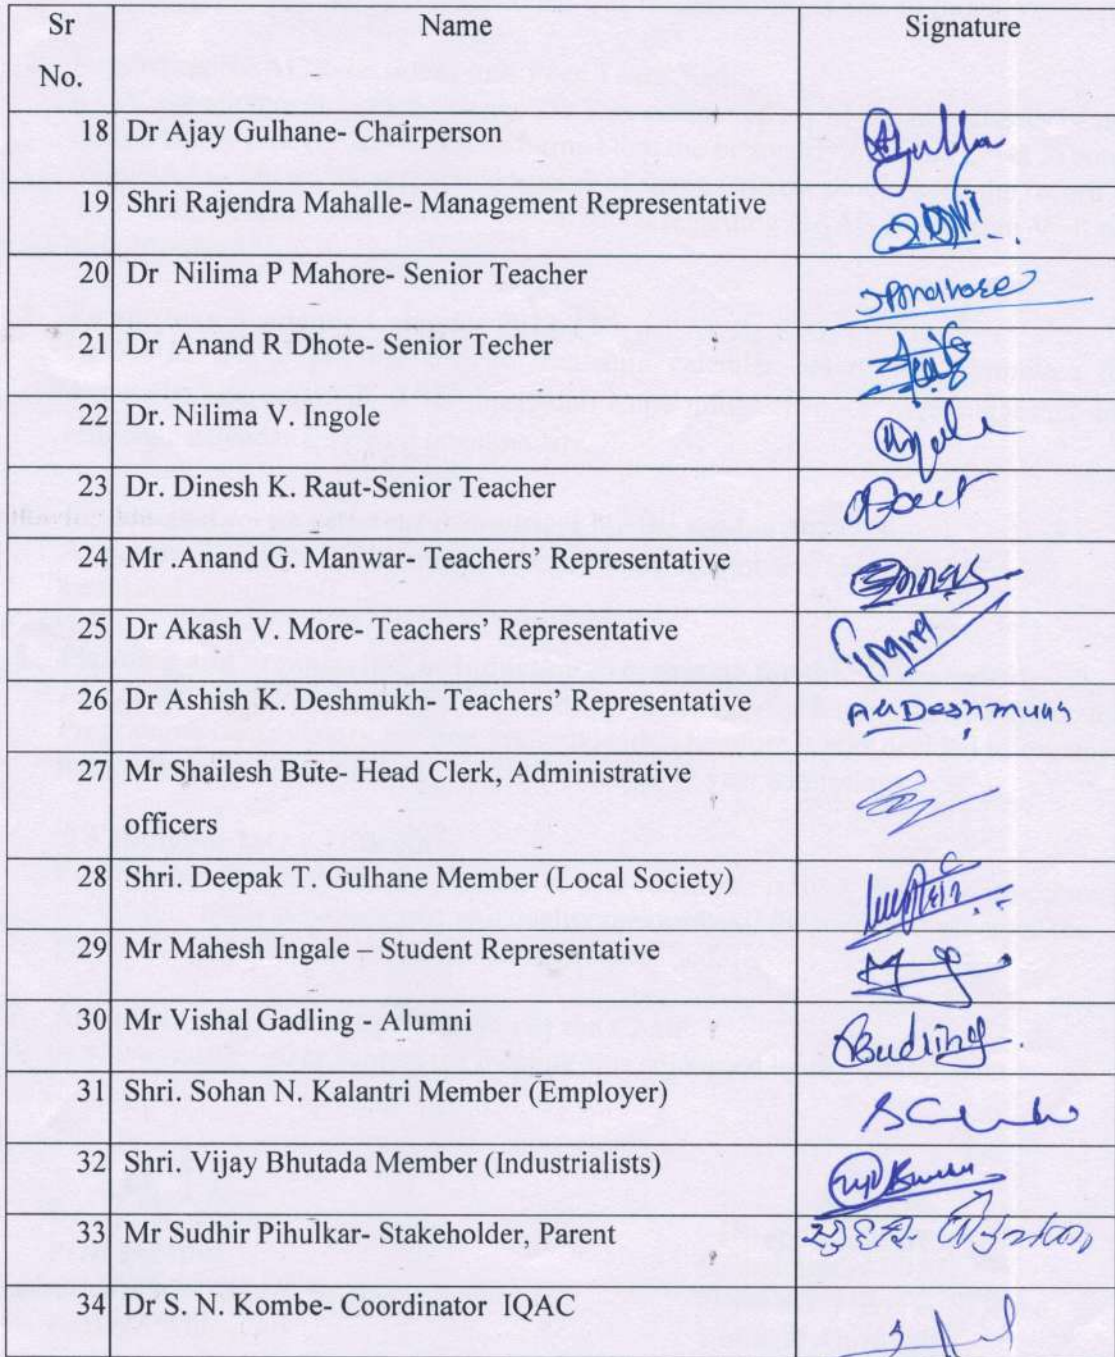 Sr No. Name Signature
18 Dr Ajay Gulhane- Chairperson
19 Shri Rajendra Mahalle- Management Representative
20 Dr Nilima P Mahore- Senior Teacher
21 Dr Anand R Dhote- Senior Techer
22 Dr. Nilima V. Ingole
23 Dr. Dinesh K. Raut-Senior Teacher
24 Mr .Anand G. Manwar- Teachers’ Representative
25 Dr Akash V. More- Teachers’ Representative
26 Dr Ashish K. Deshmukh- Teachers’ Representative AKDeshmukh
27 Mr Shailesh Bute- Head Clerk, Administrative
officers
28 Shri. Deepak T. Gulhane Member (Local Society)
29 Mr Mahesh Ingale – Student Representative
30 Mr Vishal Gadling - Alumni
31 Shri. Sohan N. Kalantri Member (Employer)
32 Shri. Vijay Bhutada Member (Industrialists)
33 Mr Sudhir Pihulkar- Stakeholder, Parent
34 Dr S. N. Kombe- Coordinator IQAC